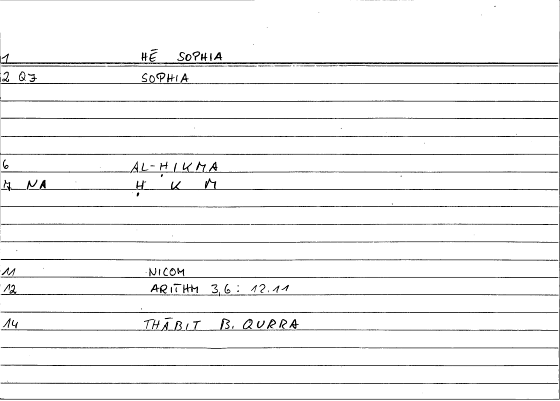 1 HĒ SOPHIA
2 QJ SOPHIA
6 AL-ḤIKMA
7 NA Ḥ K M
11 NICOM
12 ARITHM 3,6: 12.11
14 THĀBIT B. QURRA